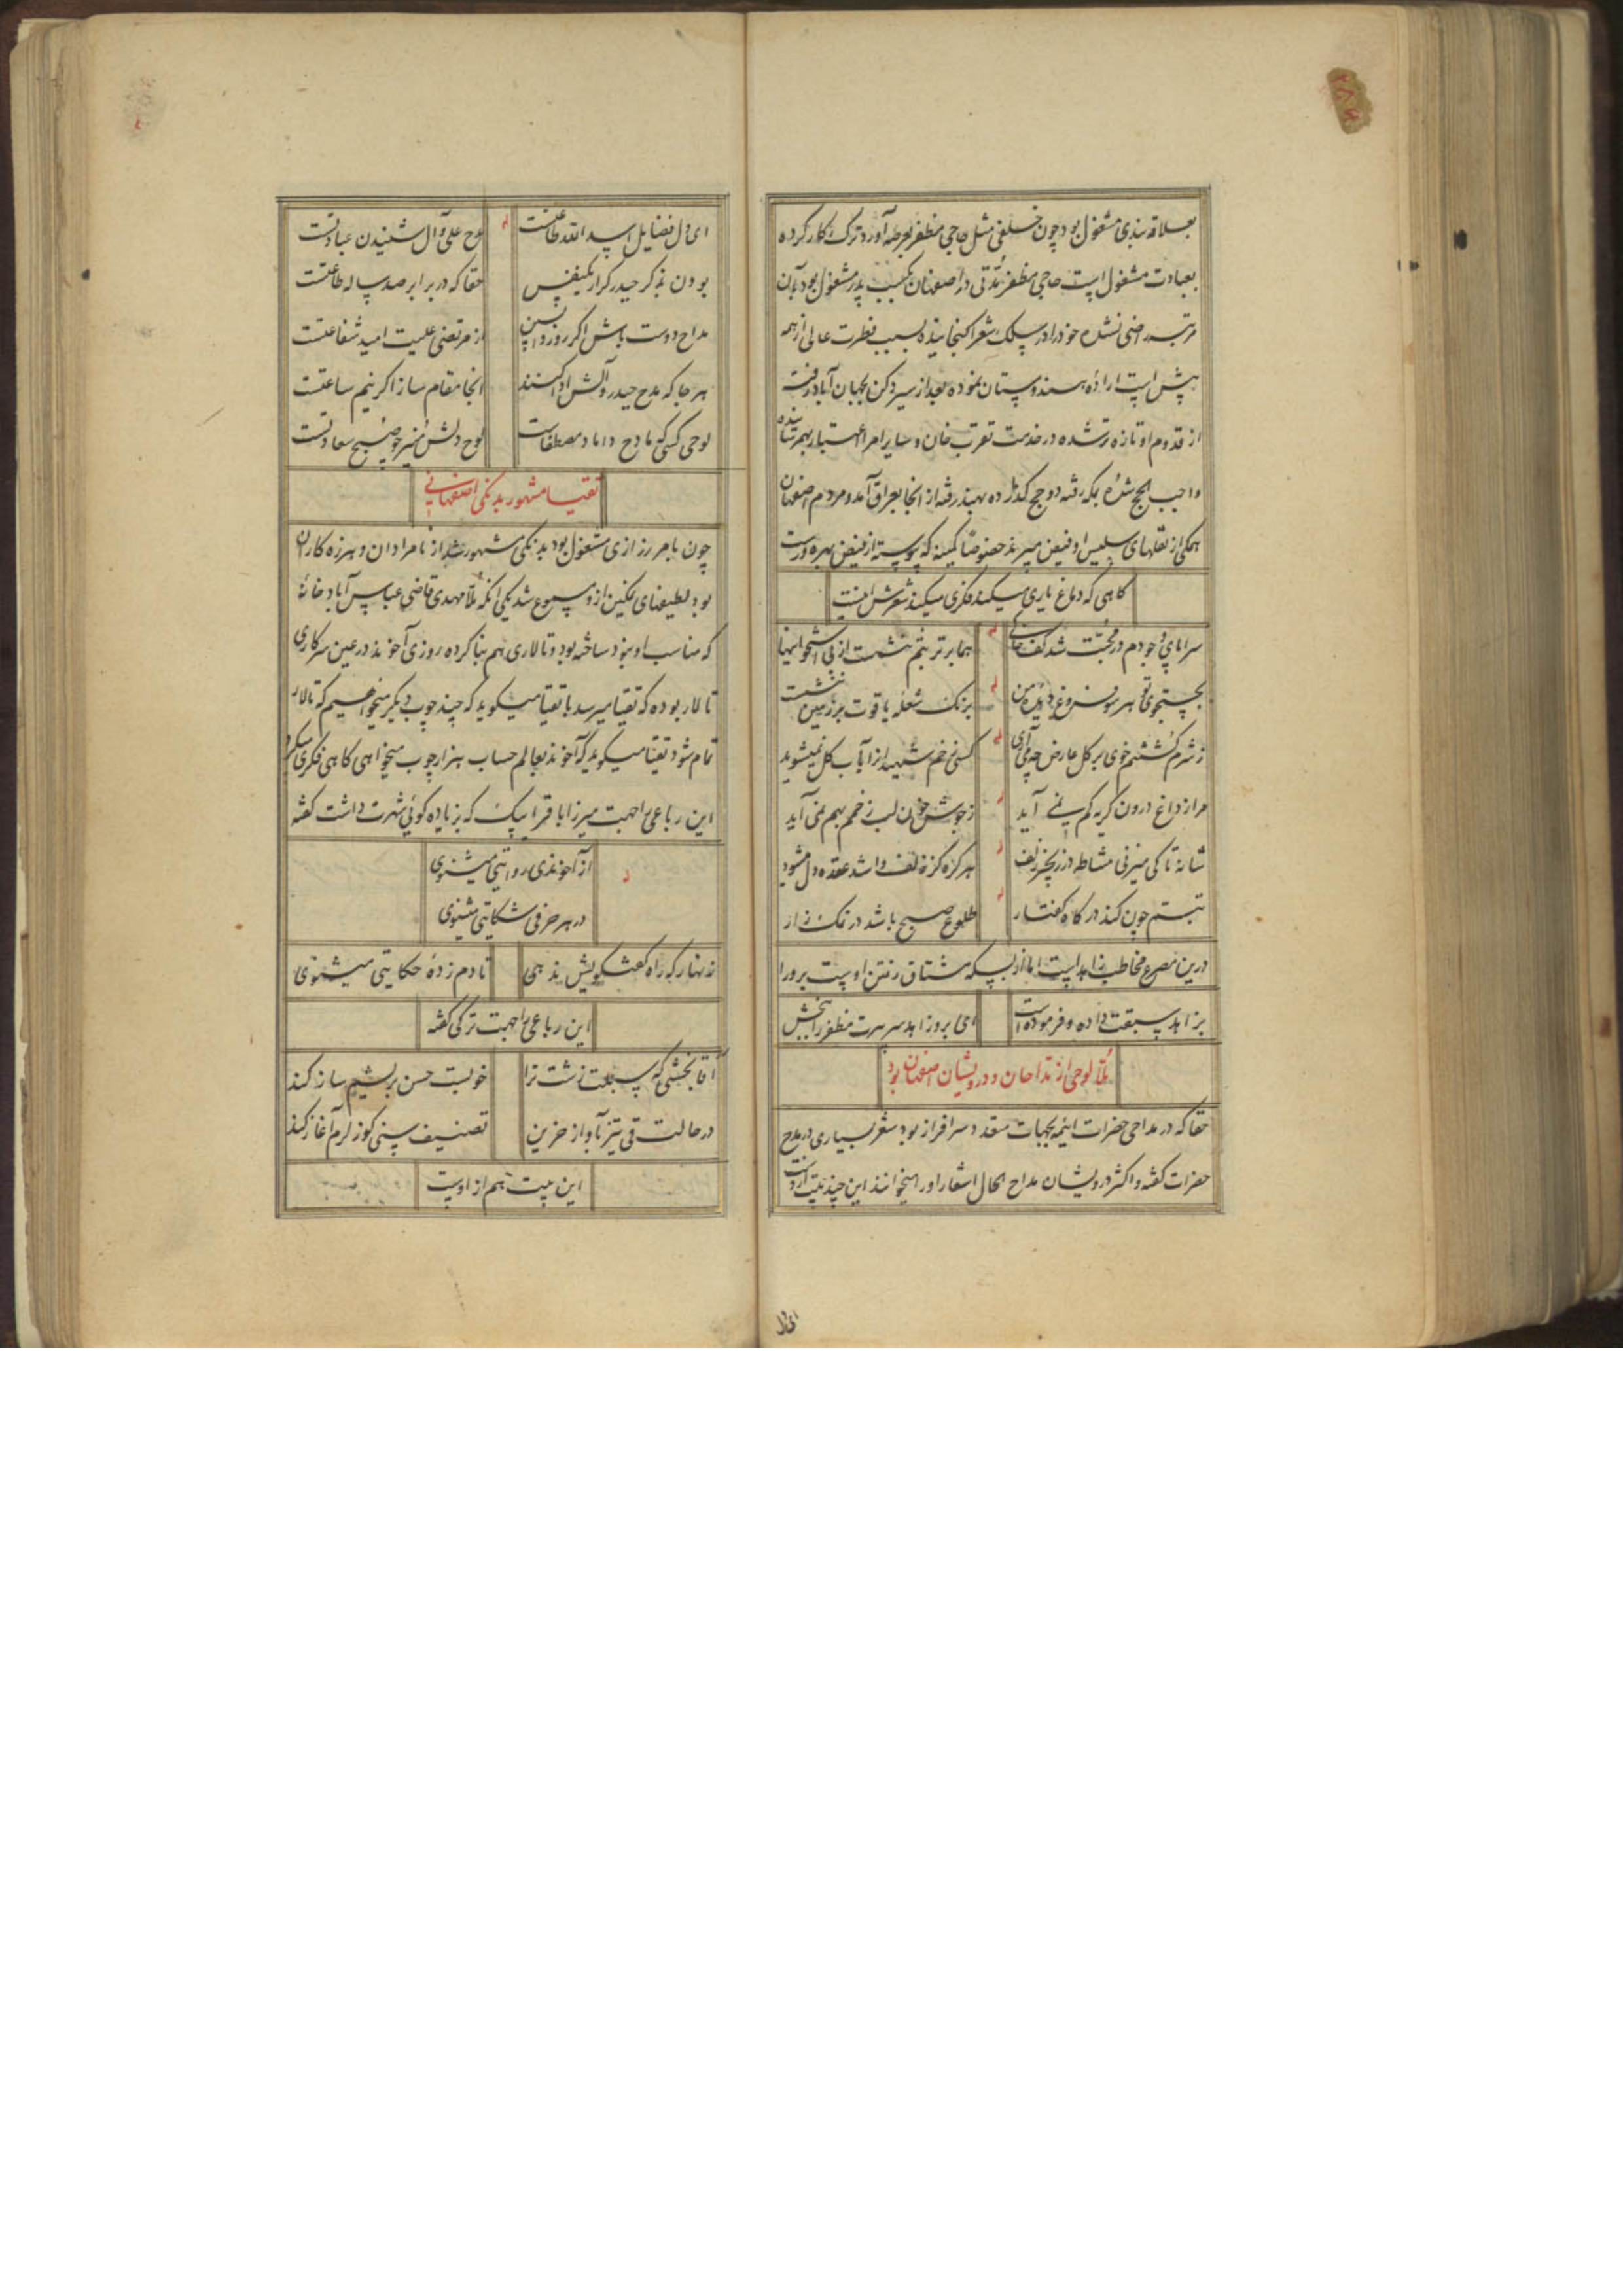 بعلاقه بندی مشغول بود چون خلفی مثل حاجی مظفر بعرصه آورد ترک کار کرده
بعبادت مشغول است حاجی مظفر مدتی در اصفهان بکسب پدر مشغول بود بآن
مرتبه راضی نشده خود را در سلک شعرا گنجانیده بسبب فطرت عالی از همه
پیش است اراده هندوستان نموده بعد از سیر دکن بجهان آباد رفت
از قدوم او تازه تر شده در خدمت تقرب خان و سایر امرا اعتبار بهم رسانیده
واجب الحج شده بمکه رفته دو حج گذارده بهند رفته از آنجا بعراق آمد و مردم اصفهان
همگی از نقلهای سلیس او فیض میبرند خصوصا کمینه که پیوسته از فیض بهره ورست
گاهی که دماغ یاری میکند فکری میکند شعرش اینست
سراپای وجودم در محبت شد کف خاکی
هما بر تربتم ننشست از بی استخوانیها
بجستجوی تو هر سو فروغ دیده من
برنگ شعله یاقوت بر زمین ننشست
ز شرم کشتنم خوی بر گل عارض چه می آری
کسی زخم شهیدان را بآب گل نمیشوید
مرا از داغ درون گریه کم نمی آید
ز جوش خون لب زخمم بهم نمی آید
شانه تا کی میزنی مشاطه در زنجیر زلف
هر گره کز زلف وا شد عقده دل میشود
تبسم چون کند در گاه گفتار
طلوع صبح باشد در نمک زار
درین مصرع مخاطب زاهد است اما از بسکه مشتاق رفتن اوست برو را
بزاهد سبقت داده و فرموده است
ای برو زاهد سرت مظفر را ببخش
ملا لوحی از مداحان و درویشان اصفهان بود
حقا که در مداحی حضرات ائمه بجهات متعدد سرافراز بود شعر بسیاری در مدح
حضرات گفته و اکثر درویشان مداح الحال اشعار او را میخوانند این چند بیت ازوست
ای دل
ای دل فضایل اسد الله طاعتست
مدح علی و آل شنیدن عبادتست
بودن بذکر حیدر کرار یکنفس
حقا که در برابر صد ساله طاعتست
مداح دوست باش اگر روز واپسین
از مرتضی علیت امید شفاعتست
هر جا که مدح حیدر و آلش ادا کنند
آنجا مقام ساز اگر نیم ساعتست
لوحی کسی که مادح داماد مصطفاست
لوح دلش منیر چو صبح سعادتست
تقیا مشهور بدنگی اصفهانی
چون بامر رزازی مشغول بود بدنگی مشهور شد از نامرادان و هرزه کاران
بود لطیفهای نمکین ازو مسموع شد یکی آنکه ملا مهدی قاضی عباس آباد خانه
که مناسب او نبود ساخته بود و تالاری هم بنا کرده روزی آخوند در عین سرکاری
تالار بوده که تقیا میرسد با تقیا میگوید که چند چوب دیگر میخواهیم که تالار
تمام شود تقیا میگوید که آخوند بعالم حساب هزار چوب میخواهی گاهی فکری میکرد
این رباعی را جهت میرزا باقرا بیک که بزیاده گوئی شهرت داشت گفته
از آخوندی روایتی میشنوی
در هر حرفی شکایتی میشنوی
زنهار که راه گفتگویش ندهی
تا دم زده حکایتی میشنوی
این رباعی را جهت ترکی گفته
آقا بخشی که سبلت زشت ترا
خوبست حسن بریشم ساز کند
در حالت قی تیز بآواز حزین
تصنیف سنی گوزلرم آغاز کند
این بیت هم از اوست